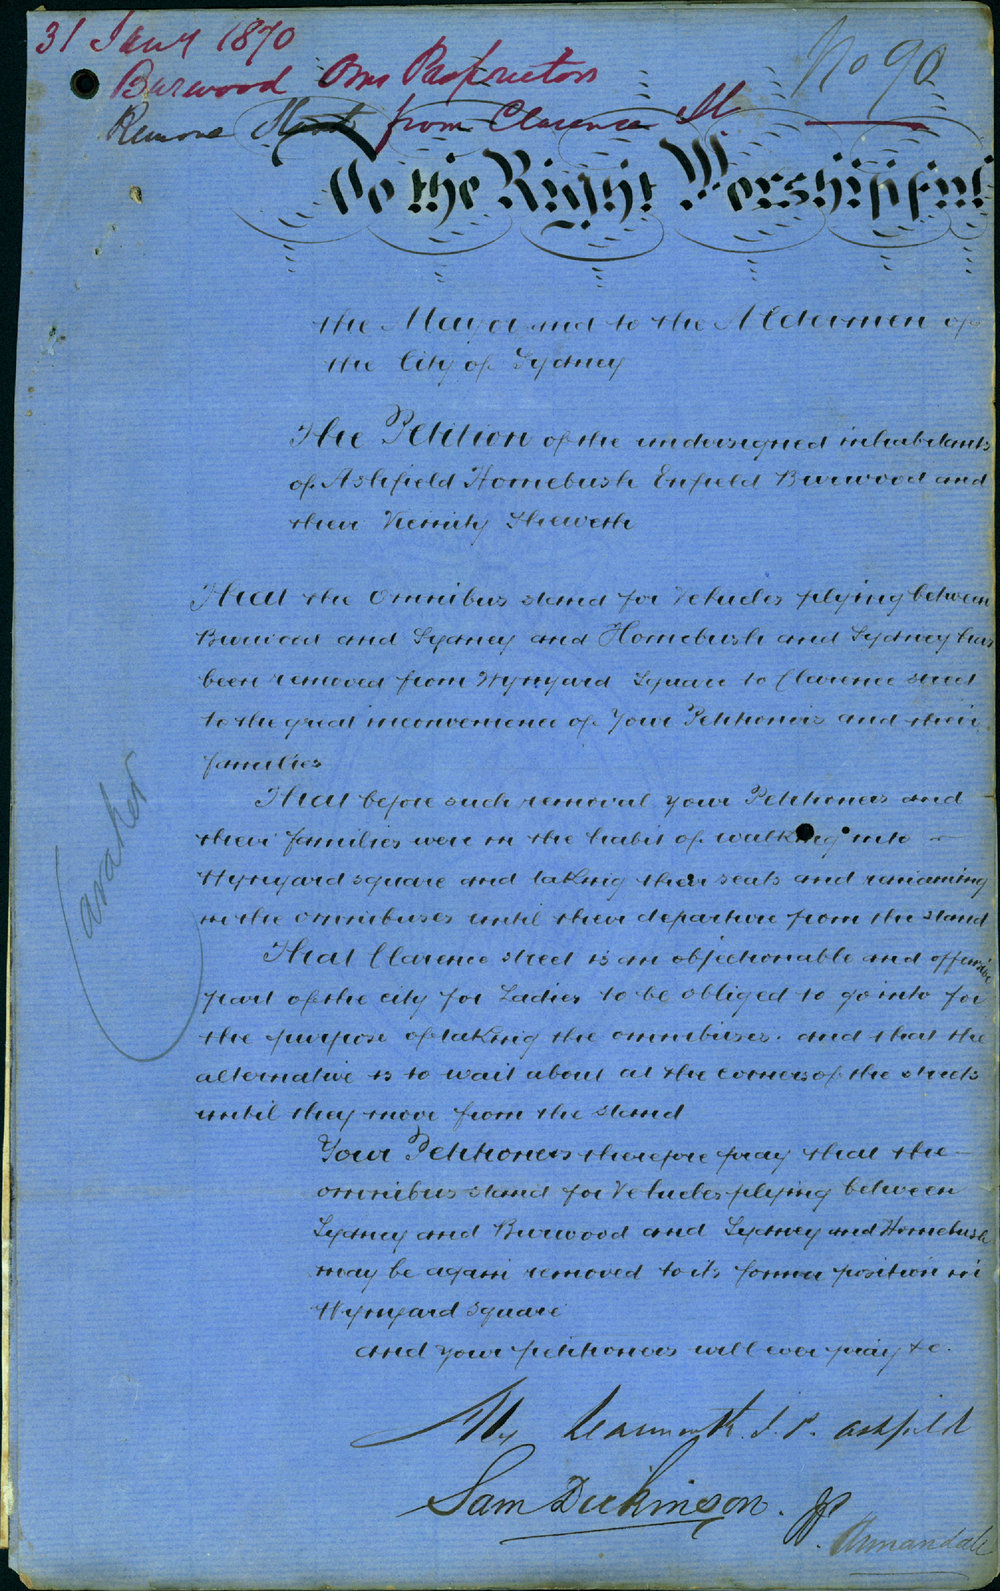 31 Jany 1870
No 90
Burwood Oms Proprietors
Remove Stands from Clarence St
To the Right Worshipful
the Mayor and to the Aldermen of
the City of Sydney
The Petition of the undersigned inhabitants
of Ashfield Homebush Enfield Burwood and
their Vicinity Sheweth
That the Omnibus stand for Vehicles plying between
Burwood and Sydney and Homebush and Sydney has
been removed from Wynyard Square to Clarence street
to the great inconvenience of Your Petitioners and their
families
That before such removal your Petitioners and
their families were in the habit of walking into
Wynyard square and taking their seats and remaining
in the omnibuses until their departure from the stand
That Clarence street is an objectionable and offensive
part of the city for Ladies to be obliged to go into for
the purpose of taking the omnibuses. and that the
alternative is to wait about at the corners of the streets
until they move from the stand
Your Petitioners therefore pray that the
omnibus stand for Vehicles plying between
Sydney and Burwood and Sydney and Homebush
may be again removed to its former position in
Wynyard Square
and your petitioners will ever pray &c.
J.P. Ashfield
Sam Dickinson. JP
Annandale